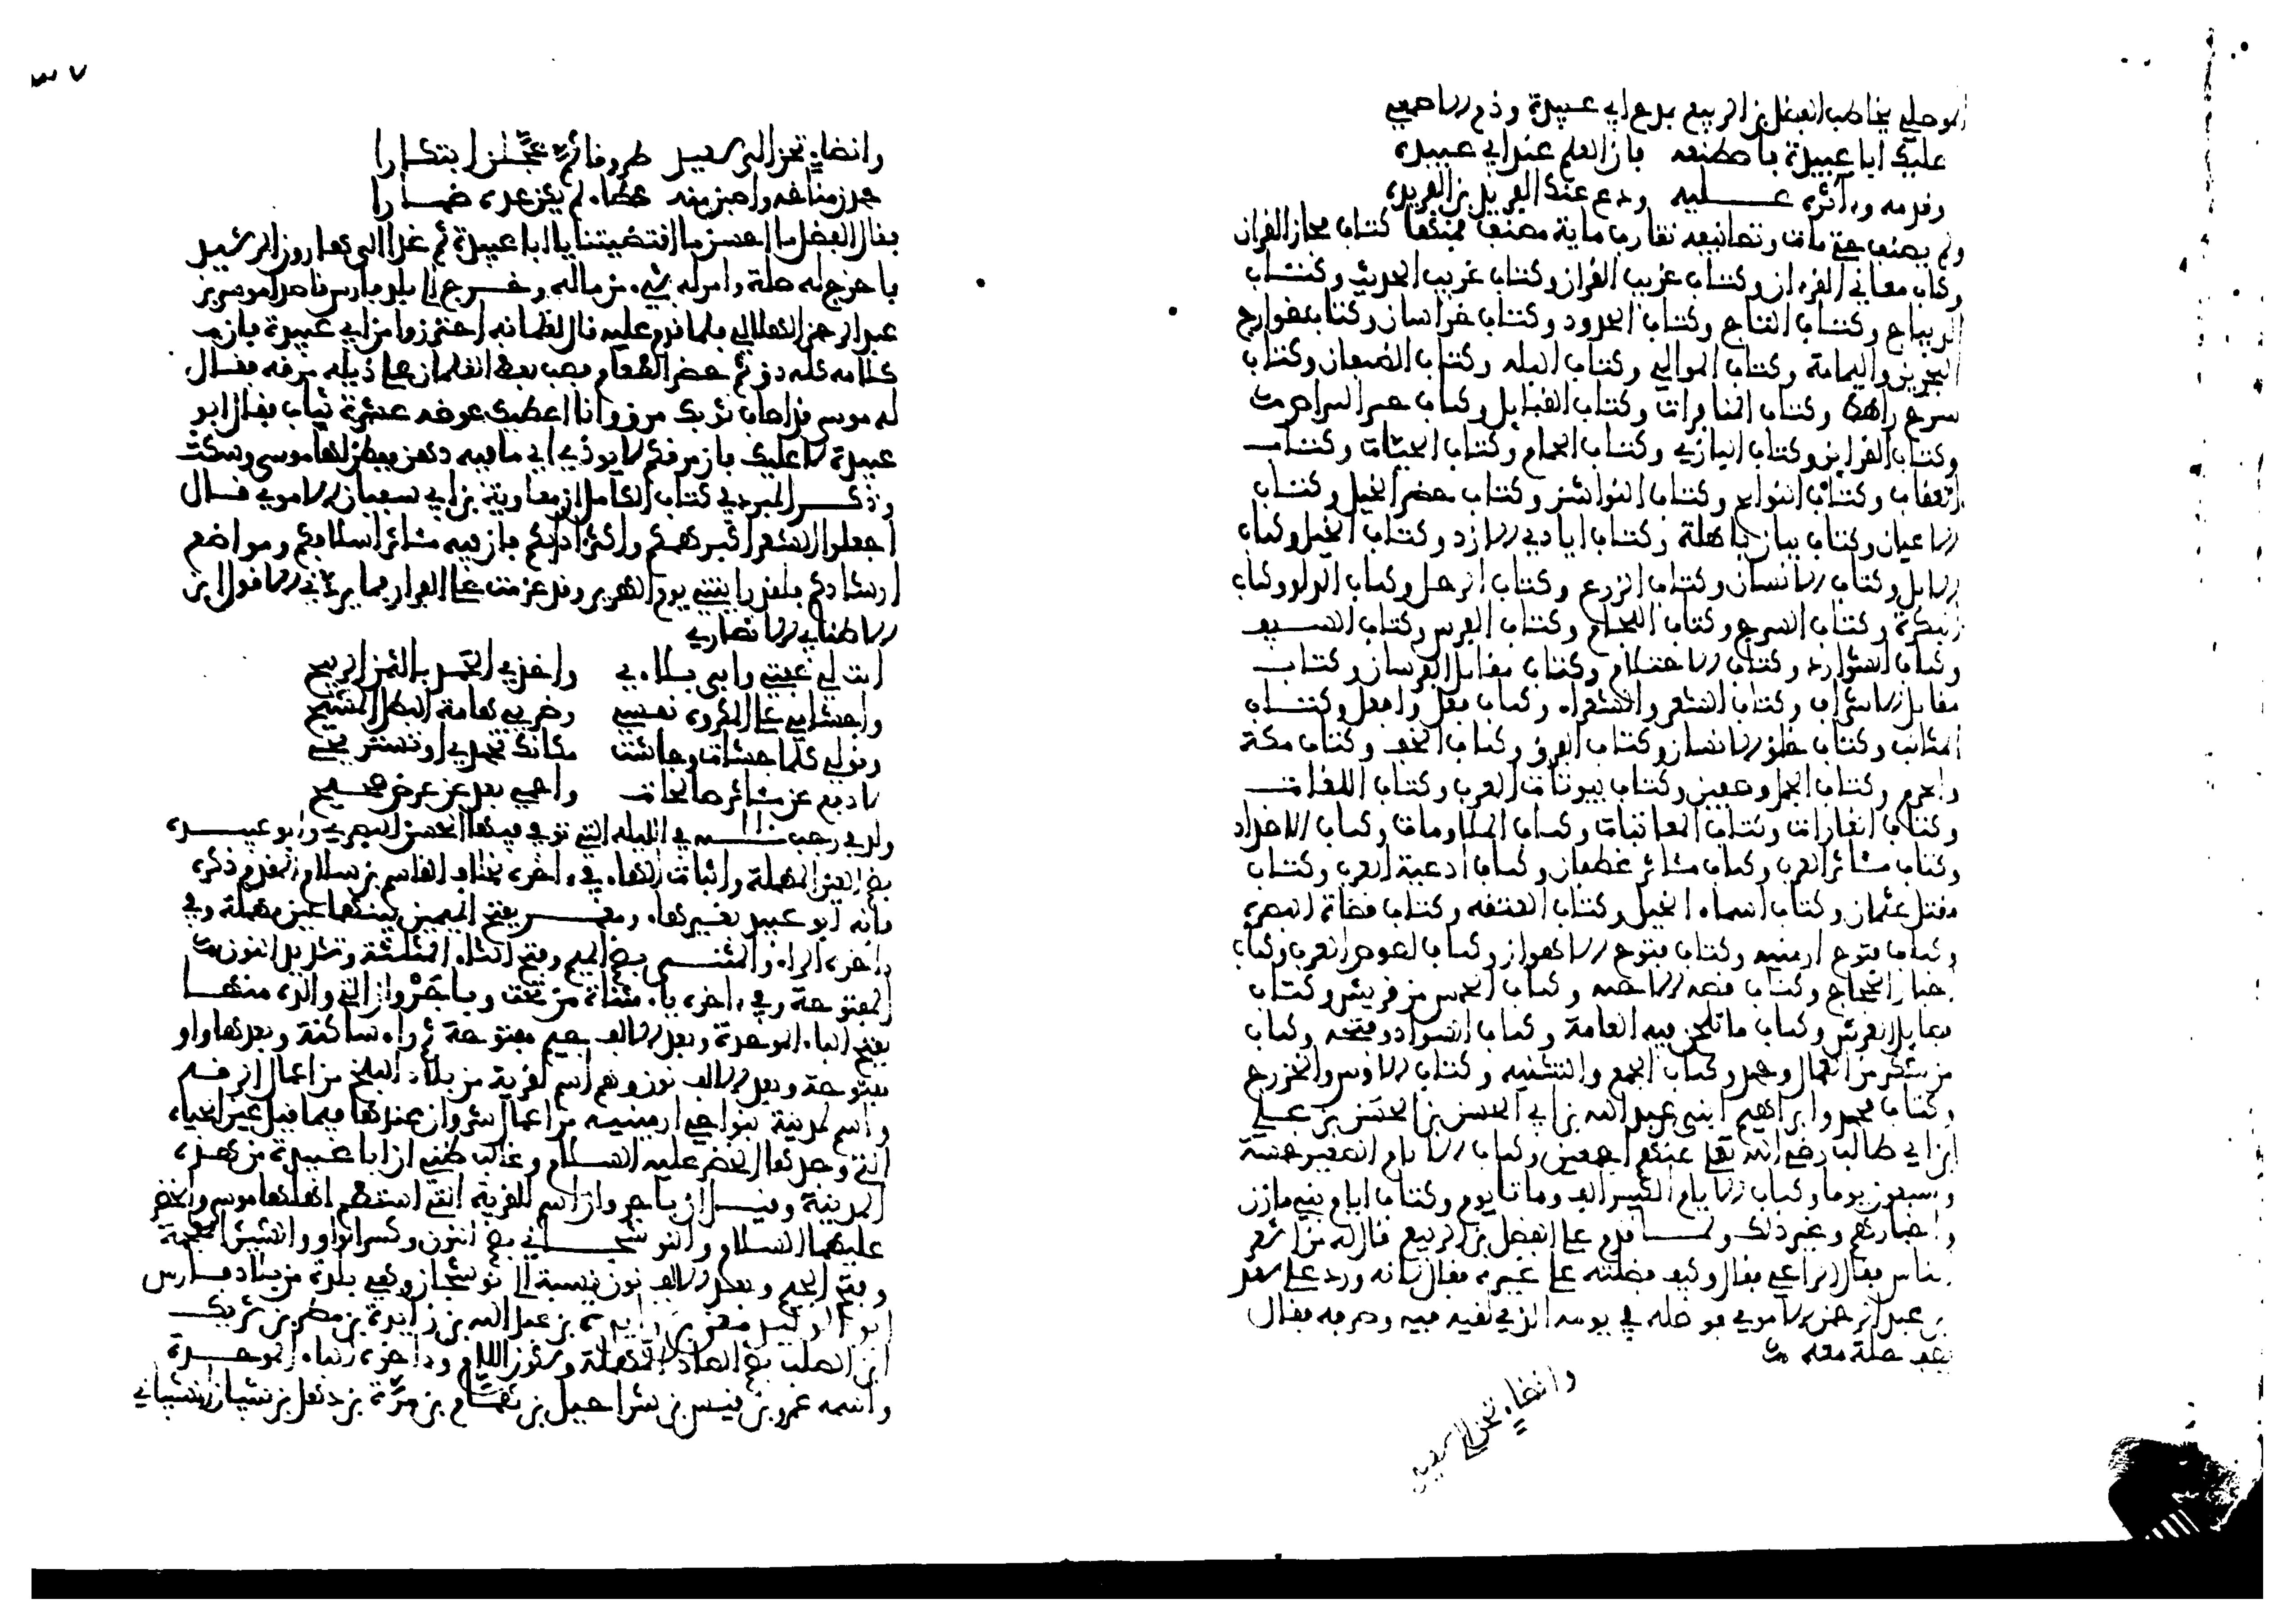 الموصلي يخاطب الفضل بن الربيع يمدح ابي عبيدة وذم الاصمعي
عليك ابا عبيدة فاصطنعه فان العلم عند ابي عبيدة
وقدمه وءاثره عليه ودع عنك القريد بن القريدة
ولم يصنف حتى مات وتصانيفه تقارب ماية مصنف فمنها كتاب مجاز القران
وكتاب معاني القرءان وكتاب غريب القران وكتاب غريب الحديث وكتاب
الديباج وكتاب التاج وكتاب الحدود وكتاب خراسان وكتاب خوارج
البحرين واليمامة وكتاب الموالي وكتاب البله وكتاب الضيفان وكتاب
مرج راهط وكتاب المنافرات وكتاب القبايل وكتاب خبر البراض
وكتاب القراين وكتاب البازي وكتاب الحمام وكتاب الحيات وكتاب
العقاب وكتاب النواكح وكتاب النواشز وكتاب حضر الخيل وكتاب
الاعيان وكتاب بيان باهلة وكتاب ايادي الازد وكتاب الخيل وكتاب
الابل وكتاب الانسان وكتاب الزرع وكتاب الرحل وكتاب الدلو وكتاب
البكرة وكتاب السرج وكتاب اللجام وكتاب الفرس وكتاب السيف
وكتاب الشوارد وكتاب الاحتلام وكتاب مقاتل الفرسان وكتاب
مقاتل الاشراف وكتاب الشعر والشعراء وكتاب فعل وافعل وكتاب
المثالب وكتاب خلق الانسان وكتاب الفرق وكتاب الخف وكتاب مكة
والحرم وكتاب الجمل وصفين وكتاب بيوتات العرب وكتاب اللغات
وكتاب الغارات وكتاب المعاتبات وكتاب الملاومات وكتاب الاضداد
وكتاب مئاثر العرب وكتاب مئاثر غطفان وكتاب ادعية العرب وكتاب
مقتل عثمان وكتاب اسماء الخيل وكتاب العققة وكتاب قضاة البصرة
وكتاب فتوح ارمنيه وكتاب فتوح الاهواز وكتاب لصوص العرب وكتاب
اخبار الحجاج وكتاب قصة الكعبه وكتاب الحمس من قريش وكتاب
فضايل الفرس وكتاب ما تلحن فيه العامة وكتاب السواد وفتحه وكتاب
من شكر من العمال وحمد وكتاب الجمع والتثنيه وكتاب الاوس والخزرج
وكتاب محمد وابراهيم ابني عبد الله بن ابي الحسن بن الحسن بن علي
ابن ابي طالب رضي الله تعلى عنهم اجمعين وكتاب الايام الصغير خمسة
وسبعون يوما وكتاب الايام الكبير الف وماتا يوم وكتاب ايام بني مازن
واخبارهم وغير ذلك ولما قدم على الفضل بن الربيع قال له من اشعر
الناس فقال الراعي فقال وكيف فضلته على غيره فقال لانه ورد على سعيد
بن عبد الرحمن الاموي فوصله في يومه الذي لقيه فيه وصرفه فقال
يصف حاله معه
وانضاء نحن الى سعيد
وانضاء نحن الى سعيد طروقا ثم عجلن ابتكارا
حمدن مناخه واصبن منه عطاء لم يكن عدة ضمارا
فقال الفضل ما احسن ما اقتضيتنا يا ابا عبيدة ثم غدا الى هارون الرشيد
فاخرج له صلة وامر له بشيء من ماله وخرج الى بلد فارس قاصدا موسى بن
عبد الرحمن الهلالي فلما قدم عليه قال لغلمانه احترزوا من ابي عبيدة فان
كلامه كله دق ثم حضر الطعام فصب بعض الغلمان على ذيله مرقه فقال
له موسى قد اصاب ثوبك مرق وانا اعطيك عوضه عشرة ثياب فقال ابو
عبيدة لا عليك فان مرقكم لا يوذي اي ما فيه دهن ففطن لها موسى وسكت
وذكر المبرد في كتاب الكامل ان معاوية بن ابي سفيان الاموي قال
اجعلوا الشعر اكبر همكم واكثر ادابكم فان فيه مئاثر اسلافكم ومواضع
ارشادكم فلقد رايتني يوم الهرير وقد عزمت على الفرار فما يردني الا قول ابن
الاطنابه الانصاري
ابت لي عفتي وابى بلاءي واخذي الحمد بالثمن الربيح
واجشامي على المكروه نفسي وضربي هامة البطل المشيح
وقولي كلما جشات وجاشت مكانك تحمدي او تستريحي
لادفع عن مئاثر صالحات واحمي بعد عن عرض صحيح
ولد في رجب في الليله التي توفي فيها الحسن البصري وابو عبيدة
بضم العين المهملة واثبات الهاء في ءاخره بخلاف القاسم بن سلام المقدم ذكره
فانه ابو عبيد بغير هاء ومعمر بفتح الميمين بينهما عين مهملة وفي
ءاخره الراء والمثنى بضم الميم وفتح الثاء المثلثة وتشديد النون
المفتوحة وفي ءاخره ياء مثناة من تحت وباجروان التي والده منها
بفتح الباء الموحدة وبعد الالف جيم مفتوحة ثم راء ساكنة وبعدها واو
مفتوحة وبعد الالف نون وهو اسم لقرية من بلاد البليخ من اعمال الرقه
واسم لمدينة بنواحي ارمينيه من اعمال شروان عندها فيما قيل عين الحياة
التي وجدها الخضر عليه السلام وغالب ظني ان ابا عبيدة من هذه
المدينة وقيل ان باجروان اسم للقرية التي استطعم اهلها موسى والخضر
عليهما السلام والنوشجاني بضم النون وكسر الواو والشين المعجمة
وفتح الجيم وبعد الالف نون نسبة الى نوشجان وهي بلدة من بلاد فارس
ابو الوليد معن بن زايدة بن عبد الله بن زايدة بن مطر بن شريك
ابن الصلب بضم الصاد المهملة وسكون اللام وءاخره الباء الموحدة
واسمه عمرو بن قيس بن شراحيل بن همام بن مرة بن ذهل بن شيبان الشيباني